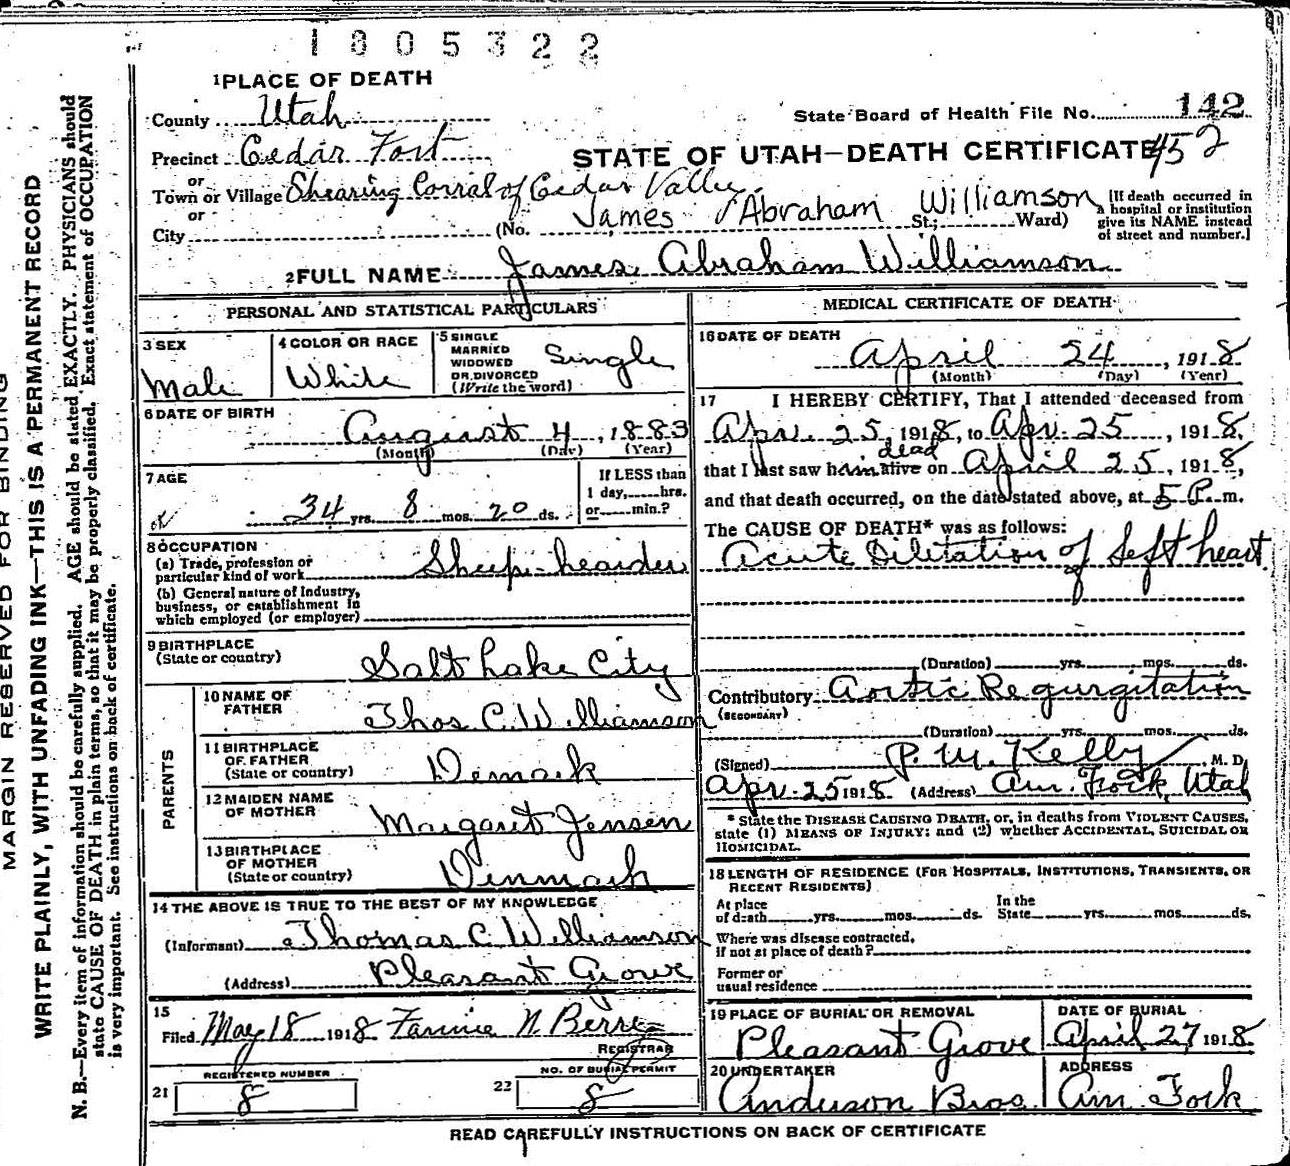 1805322
1 PLACE OF DEATH
County Utah
State Board of Health File No. 142
Precinct Cedar Fort
STATE OF UTAH—DEATH CERTIFICATE 452
or
Town or Village Shearing Corral of Cedar Valley.
or
City (No. James Abraham Williamson St.; Ward)
[If death occurred in a hospital or institution give its NAME instead of street and number.]
2 FULL NAME James Abraham Williamson
PERSONAL AND STATISTICAL PARTICULARS
3 SEX Male
4 COLOR OR RACE White
5 SINGLE MARRIED WIDOWED OR DIVORCED (Write the word) Single
6 DATE OF BIRTH
August 4, 1883
(Month) (Day) (Year)
7 AGE
34 yrs. 8 mos. 20 ds.
If LESS than
1 day, hrs.
or min.?
8 OCCUPATION
(a) Trade, profession or
particular kind of work Sheep-hearder
(b) General nature of Industry,
business, or establishment in
which employed (or employer)
9 BIRTHPLACE
(State or country) Salt Lake City
PARENTS
10 NAME OF
FATHER Thos C. Williamson
11 BIRTHPLACE
OF FATHER
(State or country) Demark
12 MAIDEN NAME
OF MOTHER Margaret Jensen
13 BIRTHPLACE
OF MOTHER
(State or country) Denmark
14 THE ABOVE IS TRUE TO THE BEST OF MY KNOWLEDGE
(Informant) Thomas C. Williamson
(Address) Pleasant Grove
15
Filed May 18 1918 Fannie N. Berry
REGISTRAR
REGISTERED NUMBER
21 8
NO. OF BURIAL PERMIT
22 8
MEDICAL CERTIFICATE OF DEATH
16 DATE OF DEATH
April 24, 1918
(Month) (Day) (Year)
17 I HEREBY CERTIFY, That I attended deceased from
Apr. 25, 1918, to Apr. 25, 1918,
dead
that I last saw him alive on April 25, 1918,
and that death occurred, on the date stated above, at 5 P. m.
The CAUSE OF DEATH* was as follows:
Acute Dilitation of Left heart.
(Duration) yrs. mos. ds.
Contributory Aortic Regurgitation
(SECONDARY)
(Duration) yrs. mos. ds.
(Signed) P. M. Kelly M. D.
Apr. 25 1918 (Address) Am. Fock, Utah
* State the DISEASE CAUSING DEATH, or, in deaths from VIOLENT CAUSES,
state (1) MEANS OF INJURY; and (2) whether ACCIDENTAL, SUICIDAL OR
HOMICIDAL.
18 LENGTH OF RESIDENCE (FOR HOSPITALS, INSTITUTIONS, TRANSIENTS, OR
RECENT RESIDENTS)
At place
of death yrs. mos. ds.
In the
State yrs. mos. ds.
Where was disease contracted,
if not at place of death?
Former or
usual residence
19 PLACE OF BURIAL OR REMOVAL
Pleasant Grove
DATE OF BURIAL
April 27, 1918
20 UNDERTAKER
Anderson Bros.
ADDRESS
Am. Fock
READ CAREFULLY INSTRUCTIONS ON BACK OF CERTIFICATE
MARGIN RESERVED FOR BINDING
WRITE PLAINLY, WITH UNFADING INK—THIS IS A PERMANENT RECORD
N. B.—Every item of information should be carefully supplied. AGE should be stated EXACTLY. PHYSICIANS should
state CAUSE OF DEATH in plain terms, so that it may be properly classified. Exact statement of OCCUPATION
is very important. See instructions on back of certificate.